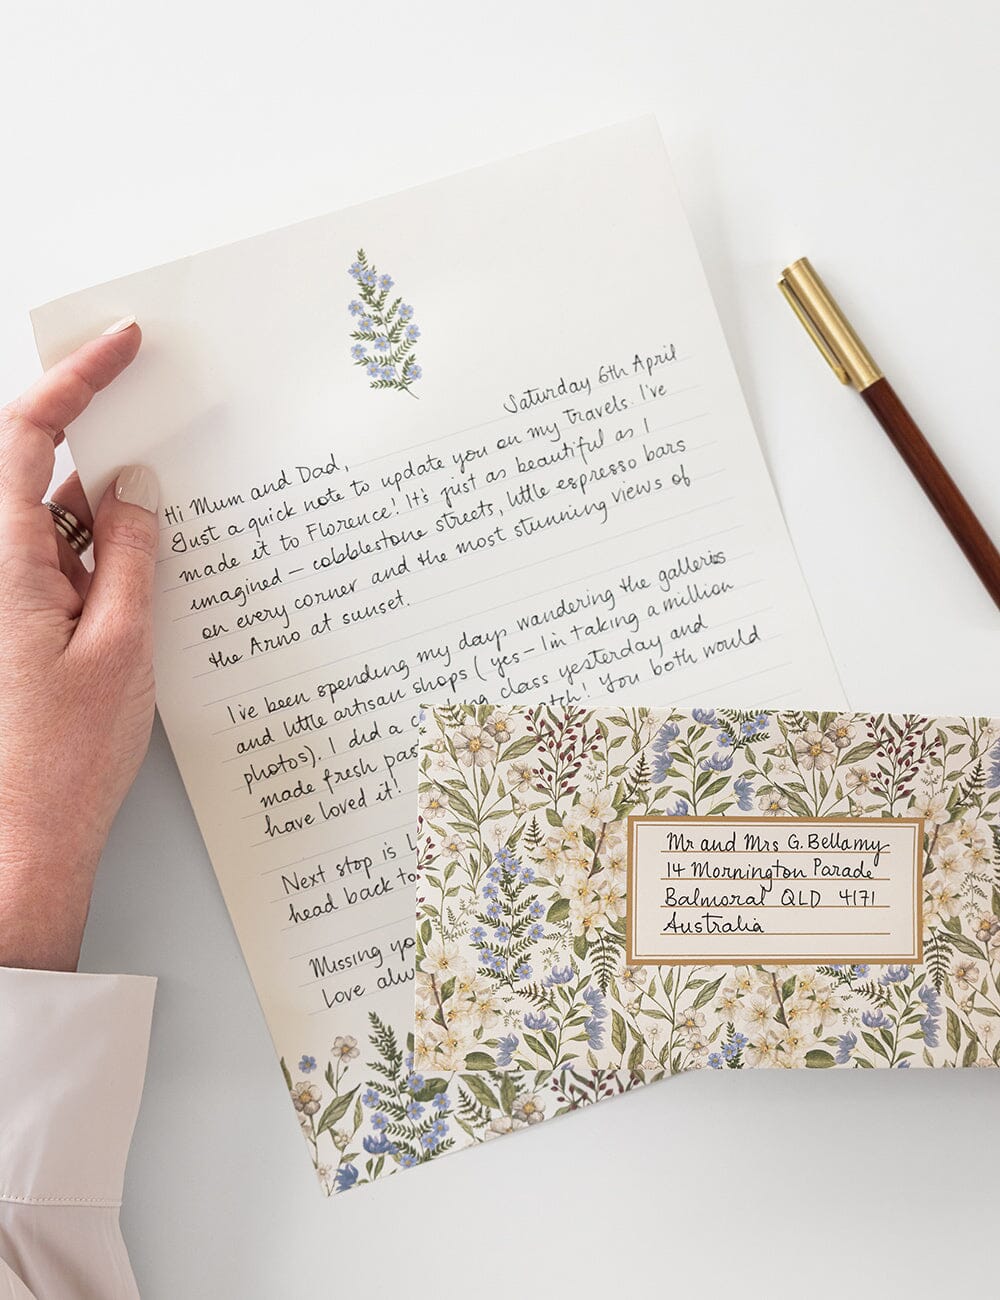 Saturday 6th April
Hi Mum and Dad,
Just a quick note to update you on my travels. I've
made it to Florence! It's just as beautiful as I
imagined – cobblestone streets, little espresso bars
on every corner and the most stunning views of
the Arno at sunset.
I've been spending my days wandering the galleries
and little artisan shops (yes – I'm taking a million
photos). I did a class yesterday and
made fresh You both would
have loved it!
Next stop is
head back to
Missing
Love
Mr and Mrs G. Bellamy
14 Mornington Parade
Balmoral QLD 4171
Australia